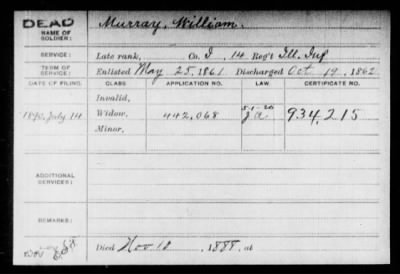 DEAD
NAME OF SOLDIER:
Murray, William.
SERVICE:
Late rank, Co. I, 14 Reg't Ill. Inf
TERM OF SERVICE:
Enlisted May 25, 1861, Discharged Oct. 19, 1862
DATE OF FILING. CLASS. APPLICATION NO. LAW. CERTIFICATE NO.
Invalid,
5-1-20
1890, July 14 Widow, 442,068 934,215
Minor,
ADDITIONAL SERVICES:
REMARKS:
Died Nov. 18, 1888, at